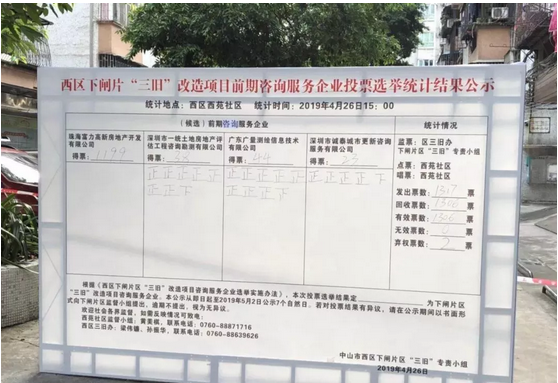 西区下闸片“三旧”改造项目前期咨询服务企业投票选举统计结果公示
统计地点：西区西苑社区 统计时间：2019年4月26日15：00
（候选）前期咨询服务企业
统计情况
珠海富力高新房地产开发有限公司
得票：1199
深圳市一统土地房地产评估工程咨询有限公司
得票：
正正正正正正下
广东广量测绘信息技术有限公司
得票：44
深圳市诚泰城市更新咨询服务有限公司
得票：23
正正正正下
监票：区三旧办
下闸片区“三旧”专责小组
点票：西苑社区
唱票：西苑社区
发出票数：1307 票
回收票数：1306 票
有效票数：1306 票
无效票数： 票
弃权票数：2 票
根据《西区下闸片区“三旧”改造项目咨询服务企业选举实施办法》，本次投票选举结果定 为下闸片区
“三旧”改造项目咨询服务企业。本公示从即日起至2019年5月2日公示7个自然日。若对投票结果有异议，请在公示期间以书面形
式向下闸片区监督小组提出，逾期不提出，视为无异议。
欢迎社会各界监督，如需反映情况可致电：
西苑社区监督小组：黄美棋，联系电话：0760-88871716
西区三旧办：梁伟镛、孙振华，联系电话：0760-88639626
中山市西区下闸片区“三旧”专责小组
2019年4月26日